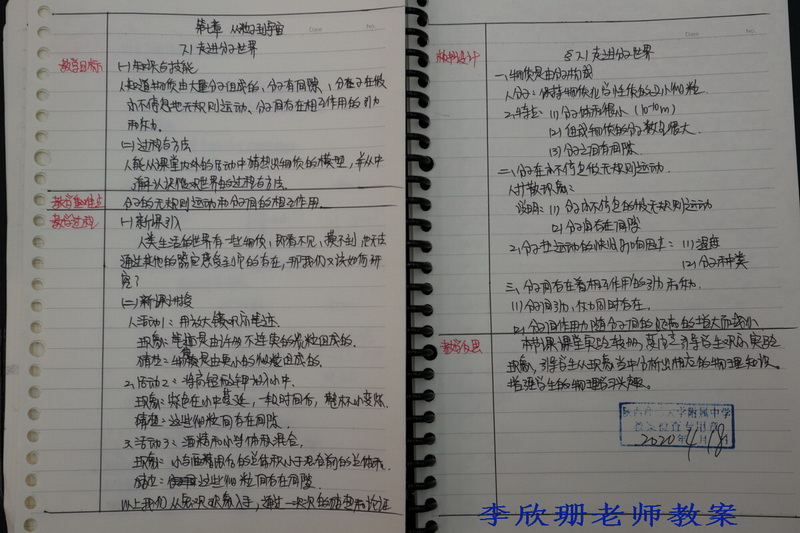 第七章 从粒子到宇宙
7.1 走进分子世界
教学目标
(一) 知识与技能
1.知道物质由大量分子组成的、分子有间隙、分子在做
永不停息地无规则运动、分子间存在相互作用的引力
和斥力.
(二) 过程与方法
1.能从课堂内外的活动中猜想出物质的模型, 并从中
认识微观世界的过程与方法
教学重难点
分子的无规则运动和分子间的相互作用.
教学过程
(一) 新课引入
人类生活的世界有一些物质, 即看不见, 摸不到
通过其他的 感受到它的存在, 那我们又该如何研
究?
(二) 新课讲授
1.活动1: 用放大镜观察笔迹
现象: 笔迹是由许多不连续的炭粒组成的.
猜想: 物质是由更小的微粒组成的.
2.活动2: 将高锰酸钾加入水中
现象: 紫色在水中蔓延, 一段时间后, 整杯水变紫.
猜想: 这些微粒间存在间隙.
3.活动3: 酒精和水等体积混合
现象: 水与酒精混合后的总体积小于混合前的总体积.
猜想: 这些微粒间存在间隙.
以上我们从宏观现象入手, 通过一次次的猜想和论证
板书设计
§7.1 走进分子世界
一. 物质是由分子构成
1.分子: 保持物质化学性质的最小微粒
2.特点: (1) 分子体积很小 (10⁻¹⁰m)
(2) 组成物质的分子数目很大.
(3) 分子之间有间隙
二. 分子在永不停息做无规则运动.
1.扩散现象:
说明: (1) 分子永不停息的做无规则运动
(2) 分子间存在间隙
2.分子热运动的快慢影响因素: (1) 温度
(2) 分子种类
三. 分子间存在着相互作用的引力和斥力.
(1) 分子间引力、斥力同时存在.
(2) 分子间作用力随分子间的距离的增大而减小.
教学反思
本节课课堂实验较多, 要注意引导学生观察实验
现象, 引导学生从现象当中分析出相应的物理知识.
增强学生的物理学习兴趣。
大学附属中学
2020年4月18日
李欣珊老师教案